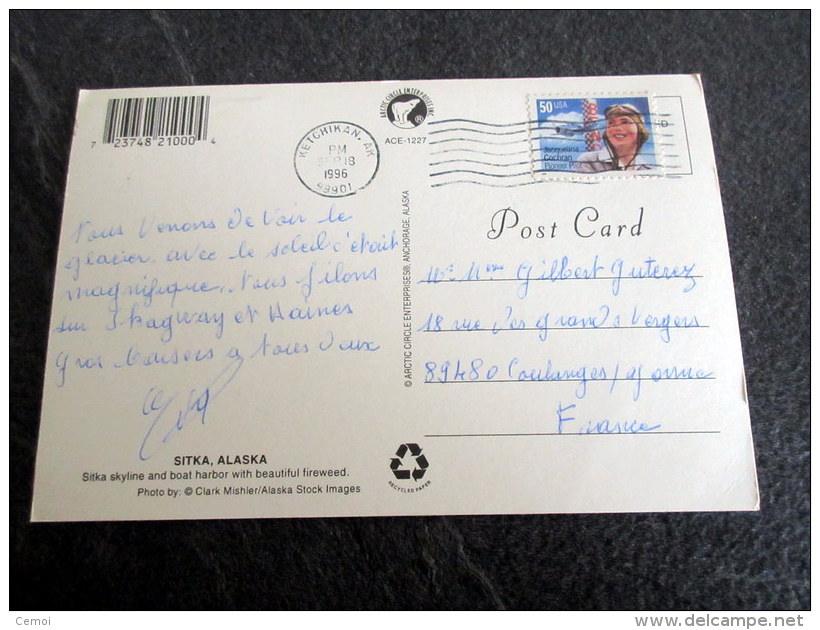 7 23748 21000 4
ARCTIC CIRCLE ENTERPRISES INC.
®
ACE-1227
KETCHIKAN, AK
PM
SEP 18
1996
99901
50 USA
Jacqueline
Cochran
Pioneer Pilot
Post Card
Nous Venons de Voir le
glacier avec le soleil c'était
magnifique. Nous filons
sur Skagway et Haines
Gros Baisers a Vous Deux
© ARCTIC CIRCLE ENTERPRISES®, ANCHORAGE, ALASKA
Mr Mme Gilbert Guterez
18 rue des grands Vergers
89480 Coulanges/Yonne
France
SITKA, ALASKA
Sitka skyline and boat harbor with beautiful fireweed.
Photo by: © Clark Mishler/Alaska Stock Images
RECYCLED PAPER
Cemoi
delcampe.net